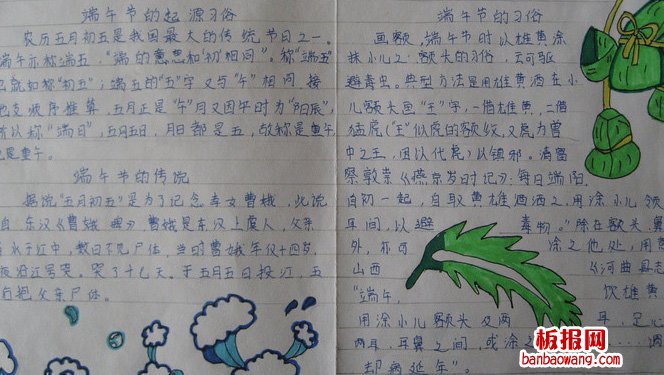 端午节的起源习俗
农历五月初五是我国最大的传统节日之一。
端午亦称端五，“端”的意思和“初”相同。称“端五”
也就如称“初五”；端五的“五”字又与“午”相同，按
地支顺序推算，五月正是“午”月又因午时为“阳辰”，
所以称“端日”，五月五日，月日都是五，故称是重午
也是重午。
端午节的传说
据说“五月初五”是为了纪念孝女曹娥，此说
自东汉《曹娥》曹娥是东汉上虞人，父亲
于江中，数日不见尸体，当时曹娥年仅十四岁，
夜沿江号哭。哭了十七天。于五月五日投江，五
后抱父亲尸体。
端午节的习俗
画额，端午节时以雄黄涂
抹小儿之额头的习俗，云可驱
避毒虫。典型方法是用雄黄酒在小
儿额头画“王”字，一借雄黄，二借
猛虎（“王”似虎的额纹，又虎为兽
中之王，因以代虎）以镇邪。清富
察敦崇《燕京岁时记》：每日端阳，
自初一起，自取黄雄酒酒之，用涂小儿领
耳间，以避毒物。”除在额头鼻
外，亦可涂之他处，用
山西《河曲县志
“端午，饮雄黄
用涂小儿额头及两耳，足心
两耳、耳鼻之间，或涂之……谓
却病延年”。
板报网
banbaowang.com